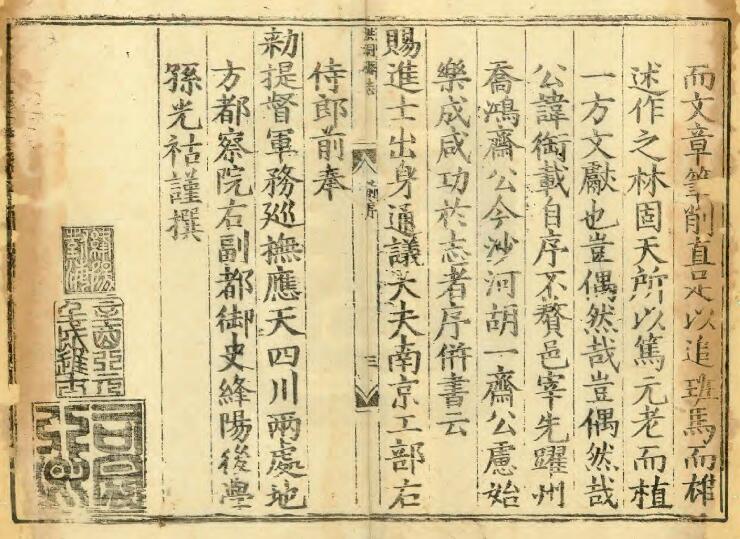 而文章筆削直足以追班馬而雄
述作之林固天所以篤元老而植
一方文獻也豈偶然哉豈偶然哉
公諱銜載自序不贅邑宰先躍州
喬鴻齋公今沙河胡一齋公慮始
樂成咸功於志者序併書云
賜進士出身通議大夫南京工部右
洪洞縣志
前序
三
侍郎前奉
勑提督軍務巡撫應天四川兩處地
方都察院右副都御史絳陽後學
孫光祜謹撰
壬戌進士